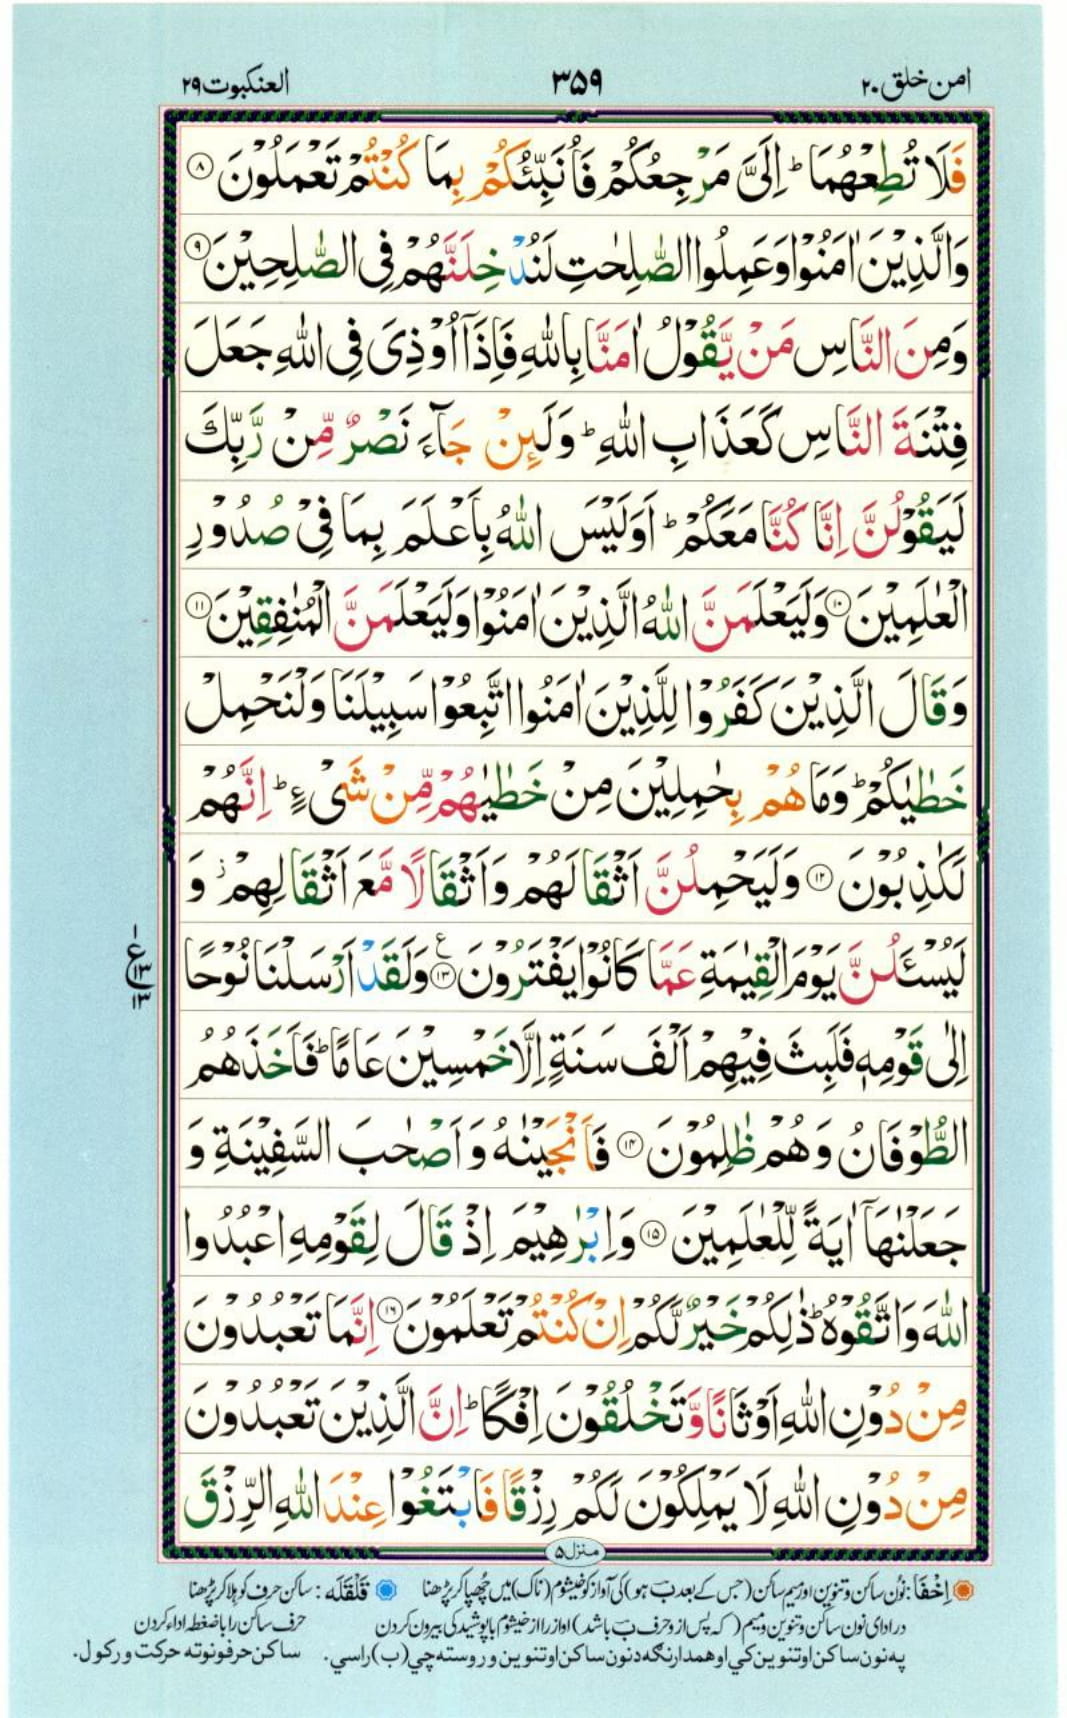 امن خلق ۲۰
۳۵۹
العنکبوت ۲۹
فَلَا تُطِعْهُمَا ؕ اِلَیَّ مَرْجِعُكُمْ فَاُنَبِّئُكُمْ بِمَا كُنْتُمْ تَعْمَلُوْنَ ۸
وَالَّذِیْنَ اٰمَنُوْا وَعَمِلُوا الصّٰلِحٰتِ لَنُدْخِلَنَّهُمْ فِی الصّٰلِحِیْنَ ۹
وَمِنَ النَّاسِ مَنْ یَّقُوْلُ اٰمَنَّا بِاللّٰهِ فَاِذَاۤ اُوْذِیَ فِی اللّٰهِ جَعَلَ
فِتْنَةَ النَّاسِ كَعَذَابِ اللّٰهِ ؕ وَلَئِنْ جَآءَ نَصْرٌ مِّنْ رَّبِّكَ
لَیَقُوْلُنَّ اِنَّا كُنَّا مَعَكُمْ ؕ اَوَلَیْسَ اللّٰهُ بِاَعْلَمَ بِمَا فِیْ صُدُوْرِ
الْعٰلَمِیْنَ ۱۰ وَلَیَعْلَمَنَّ اللّٰهُ الَّذِیْنَ اٰمَنُوْا وَلَیَعْلَمَنَّ الْمُنٰفِقِیْنَ ۱۱
وَقَالَ الَّذِیْنَ كَفَرُوْا لِلَّذِیْنَ اٰمَنُوا اتَّبِعُوْا سَبِیْلَنَا وَلْنَحْمِلْ
خَطٰیٰكُمْ ؕ وَمَا هُمْ بِحٰمِلِیْنَ مِنْ خَطٰیٰهُمْ مِّنْ شَیْءٍ ؕ اِنَّهُمْ
لَكٰذِبُوْنَ ۱۲ وَلَیَحْمِلُنَّ اَثْقَالَهُمْ وَاَثْقَالًا مَّعَ اَثْقَالِهِمْ ؗ وَ
لَیُسْـَٔلُنَّ یَوْمَ الْقِیٰمَةِ عَمَّا كَانُوْا یَفْتَرُوْنَ ۱۳ ع وَلَقَدْ اَرْسَلْنَا نُوْحًا
ع
۱۳
۱۳
اِلٰی قَوْمِهٖ فَلَبِثَ فِیْهِمْ اَلْفَ سَنَةٍ اِلَّا خَمْسِیْنَ عَامًا ؕ فَاَخَذَهُمُ
الطُّوْفَانُ وَهُمْ ظٰلِمُوْنَ ۱۴ فَاَنْجَیْنٰهُ وَاَصْحٰبَ السَّفِیْنَةِ وَ
جَعَلْنٰهَاۤ اٰیَةً لِّلْعٰلَمِیْنَ ۱۵ وَاِبْرٰهِیْمَ اِذْ قَالَ لِقَوْمِهِ اعْبُدُوا
اللّٰهَ وَاتَّقُوْهُ ؕ ذٰلِكُمْ خَیْرٌ لَّكُمْ اِنْ كُنْتُمْ تَعْلَمُوْنَ ۱۶ اِنَّمَا تَعْبُدُوْنَ
مِنْ دُوْنِ اللّٰهِ اَوْثَانًا وَّتَخْلُقُوْنَ اِفْكًا ؕ اِنَّ الَّذِیْنَ تَعْبُدُوْنَ
مِنْ دُوْنِ اللّٰهِ لَا یَمْلِكُوْنَ لَكُمْ رِزْقًا فَابْتَغُوْا عِنْدَ اللّٰهِ الرِّزْقَ
منزل ۵
اِخْفَا: نُون ساکن و تنوین اور میم ساکن (جس کے بعد بَ ہو) کی آواز کو خیشوم (ناک) میں چھپا کر پڑھنا قَلْقَلَه: ساکن حرف کو ہلا کر پڑھنا
در ادای نون ساکن و تنوین و میم (که پس از و حرف بَ باشد) اواز را از خیشوم با پوشیدگی بیرون کردن حرف ساکن را با ضغطه اداء کردن
په نون ساکن او تنوین کي او همدارنګه د نون ساکن او تنوین وروسته چي (ب) راسي. ساکن حرفونو ته حرکت ورکول.